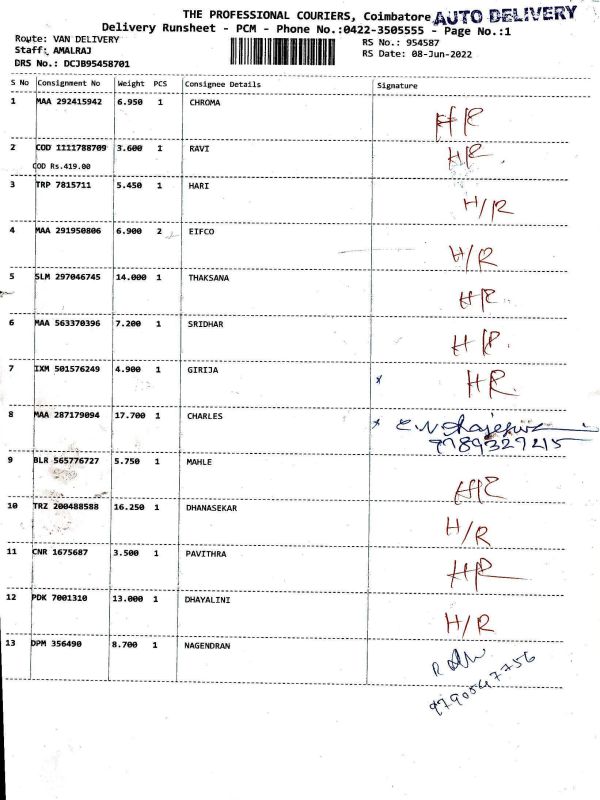 THE PROFESSIONAL COURIERS, Coimbatore AUTO DELIVERY
Delivery Runsheet - PCM - Phone No.:0422-3505555 - Page No.:1
Route: VAN DELIVERY RS No.: 954587
Staff: AMALRAJ RS Date: 08-Jun-2022
DRS No.: DCJB95458701
S No Consignment No Weight PCS Consignee Details Signature
1 MAA 292415942 6.950 1 CHROMA H/R
2 COD 1111788709 3.600 1 RAVI H/R
COD Rs.419.00
3 TRP 7815711 5.450 1 HARI H/R
4 MAA 291950806 6.900 2 EIFCO H/R
5 SLM 297046745 14.000 1 THAKSANA H/R
6 MAA 563370396 7.200 1 SRIDHAR H/R.
7 IXM 501576249 4.900 1 GIRIJA x HR.
8 MAA 287179094 17.700 1 CHARLES x
9 BLR 565776727 5.750 1 MAHLE H/R
10 TRZ 200488588 16.250 1 DHANASEKAR H/R
11 CNR 1675687 3.500 1 PAVITHRA HR
12 PDK 7001310 13.000 1 DHAYALINI H/R
13 DPM 356490 8.700 1 NAGENDRAN